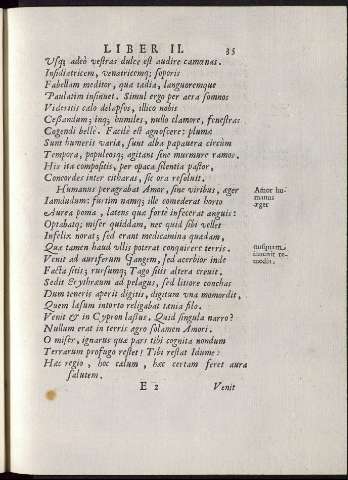 LIBER II. 35
Vsq; adeò vestras dulce est audire camœnas.
Insidiatricem, venatricemq; soporis
Fabellam meditor, qua tædia, languoremque
Paulatim insinuet. Simul ergo per aera somnos
Videritis cælo delapsos, illico nobis
Cessandum; inq; humiles, nullo clamore, fenestras
Cogendi bellè. Facilè est agnoscere: plumæ
Sunt humeris variæ, sunt alba papauera circum
Tempora, populeosq; agitant sine murmure ramos.
His ita compositis, per opaca silentia pastor,
Concordes inter citharas, sic ora resoluit.
Humanus peragrabat Amor, sine viribus, æger
Amor hu-
manus
æger
Iamdudum: furtim namq; ille comederat horto
Aurea poma, latens quæ fortè infecerat anguis:
Optabatq; miser quiddam, nec quid sibi vellet
Infelix norat; sed erant medicamina quædam,
Quæ tamen haud vllis poterat conquirere terris.
nusquam,
inuenit re-
medii.
Venit ad auriferum Gangem, sed acerbior inde
Facta sitis; rursumq; Tago sitis altera creuit.
Sedit Erythræum ad pelagus, sed littore conchas
Dum teneris aperit digitis, digitum vna momordit,
Quem læsum intorto religabat tænia filo.
Venit & in Cypron lassus. Quid singula narro?
Nullum erat in terris agro solamen Amori.
O miser, ignarus quæ pars tibi cognita nondum
Terrarum profugo restet! Tibi restat Idume:
Hæc regio, hoc cælum, hæc certam feret aura
salutem.
E 2 Venit